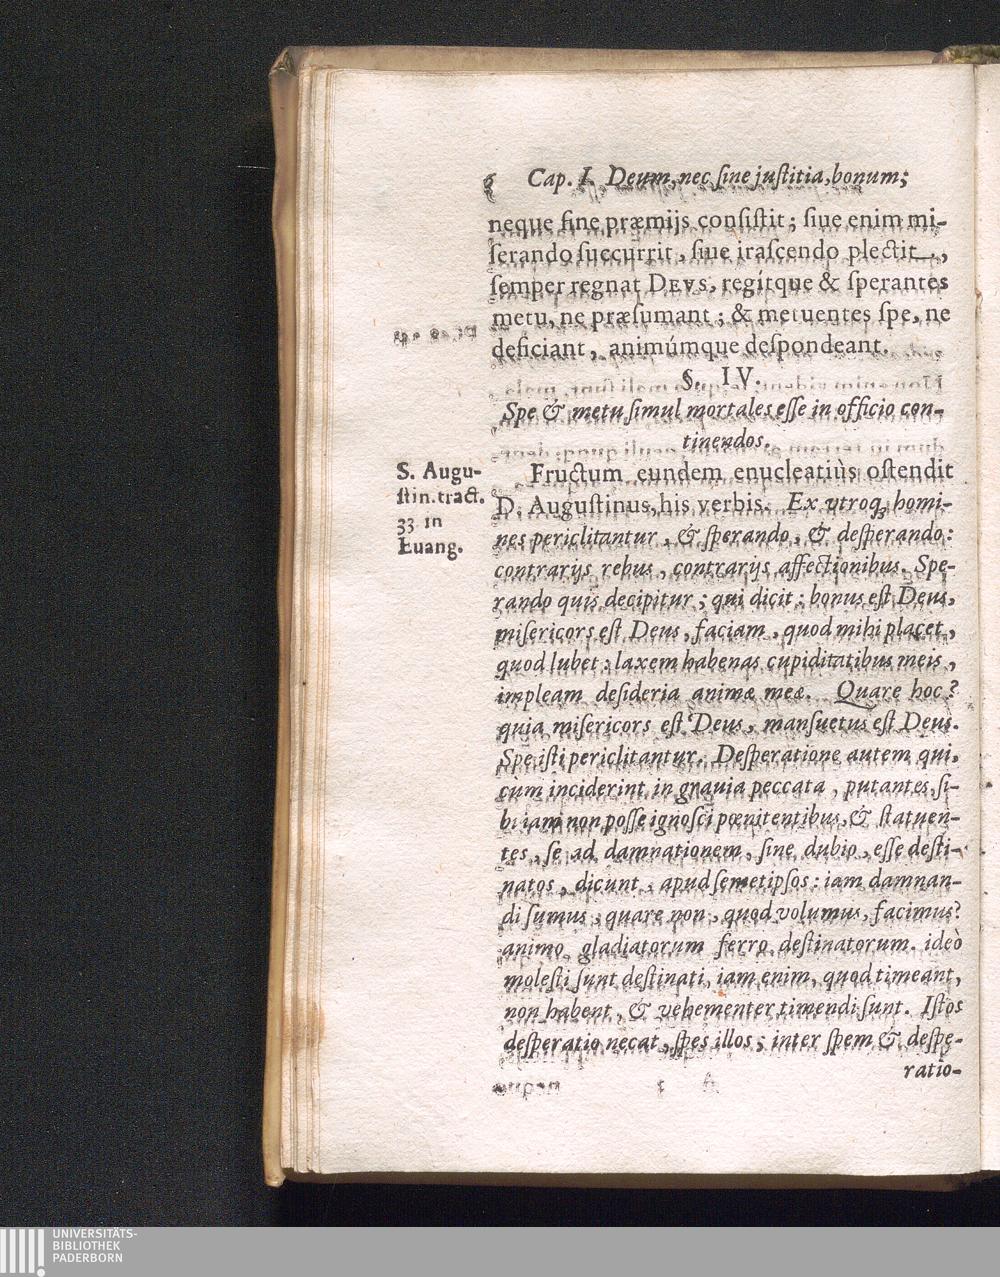 6 Cap. I. Deum, nec ſine juſtitia, bonum;
neque ſine præmijs conſiſtit; ſiue enim mi-
ſerando ſuccurrit, ſiue iraſcendo plectit,
ſemper regnat DEVS, regítque & ſperantes
metu, ne præſumant; & metuentes ſpe, ne
deficiant, animúmque deſpondeant.
§. IV.
Spe & metu ſimul mortales eſſe in officio con-
tinendos.
S. Augu-
ſtin. tract.
33 in
Euang.
Fructum eundem enucleatiùs oſtendit
D. Auguſtinus, his verbis. Ex vtroq; homi-
nes periclitantur, & ſperando, & deſperando:
contrarijs rebus, contrarijs affectionibus. Spe-
rando quis decipitur; qui dicit: bonus eſt Deus,
miſericors eſt Deus, faciam, quod mihi placet,
quod lubet: laxem habenas cupiditatibus meis,
impleam deſideria animæ meæ. Quare hoc?
quia miſericors eſt Deus, manſuetus eſt Deus.
Spe iſti periclitantur. Deſperatione autem qui,
cum inciderint in grauia peccata, putantes, ſi-
bi iam non poſſe ignoſci pœnitentibus, & ſtatuen-
tes, ſe ad damnationem, ſine dubio, eſſe deſti-
natos, dicunt, apud ſemetipſos: iam damnan-
di ſumus, quare non, quod volumus, facimus?
animo gladiatorum ferro deſtinatorum. ideò
moleſti ſunt deſtinati, iam enim, quod timeant,
non habent, & vehementer timendi ſunt. Iſtos
deſperatio necat, ſpes illos; inter ſpem & deſpe-
ratio-
UNIVERSITÄTS-
BIBLIOTHEK
PADERBORN